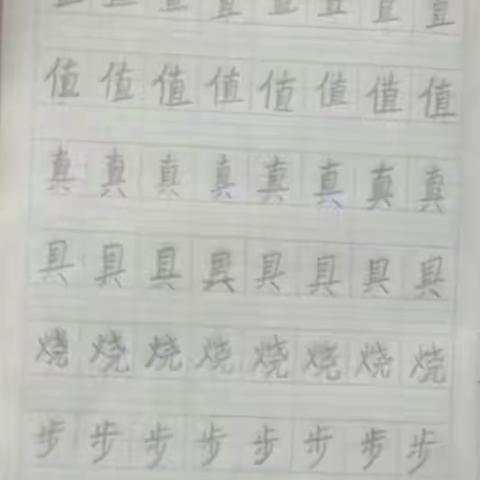 直 直 直 直 直 直 直 直
值 值 值 值 值 值 值 值
真 真 真 真 真 真 真 真
具 具 具 具 具 具 具 具
烧 烧 烧 烧 烧 烧 烧 烧
步 步 步 步 步 步 步 步